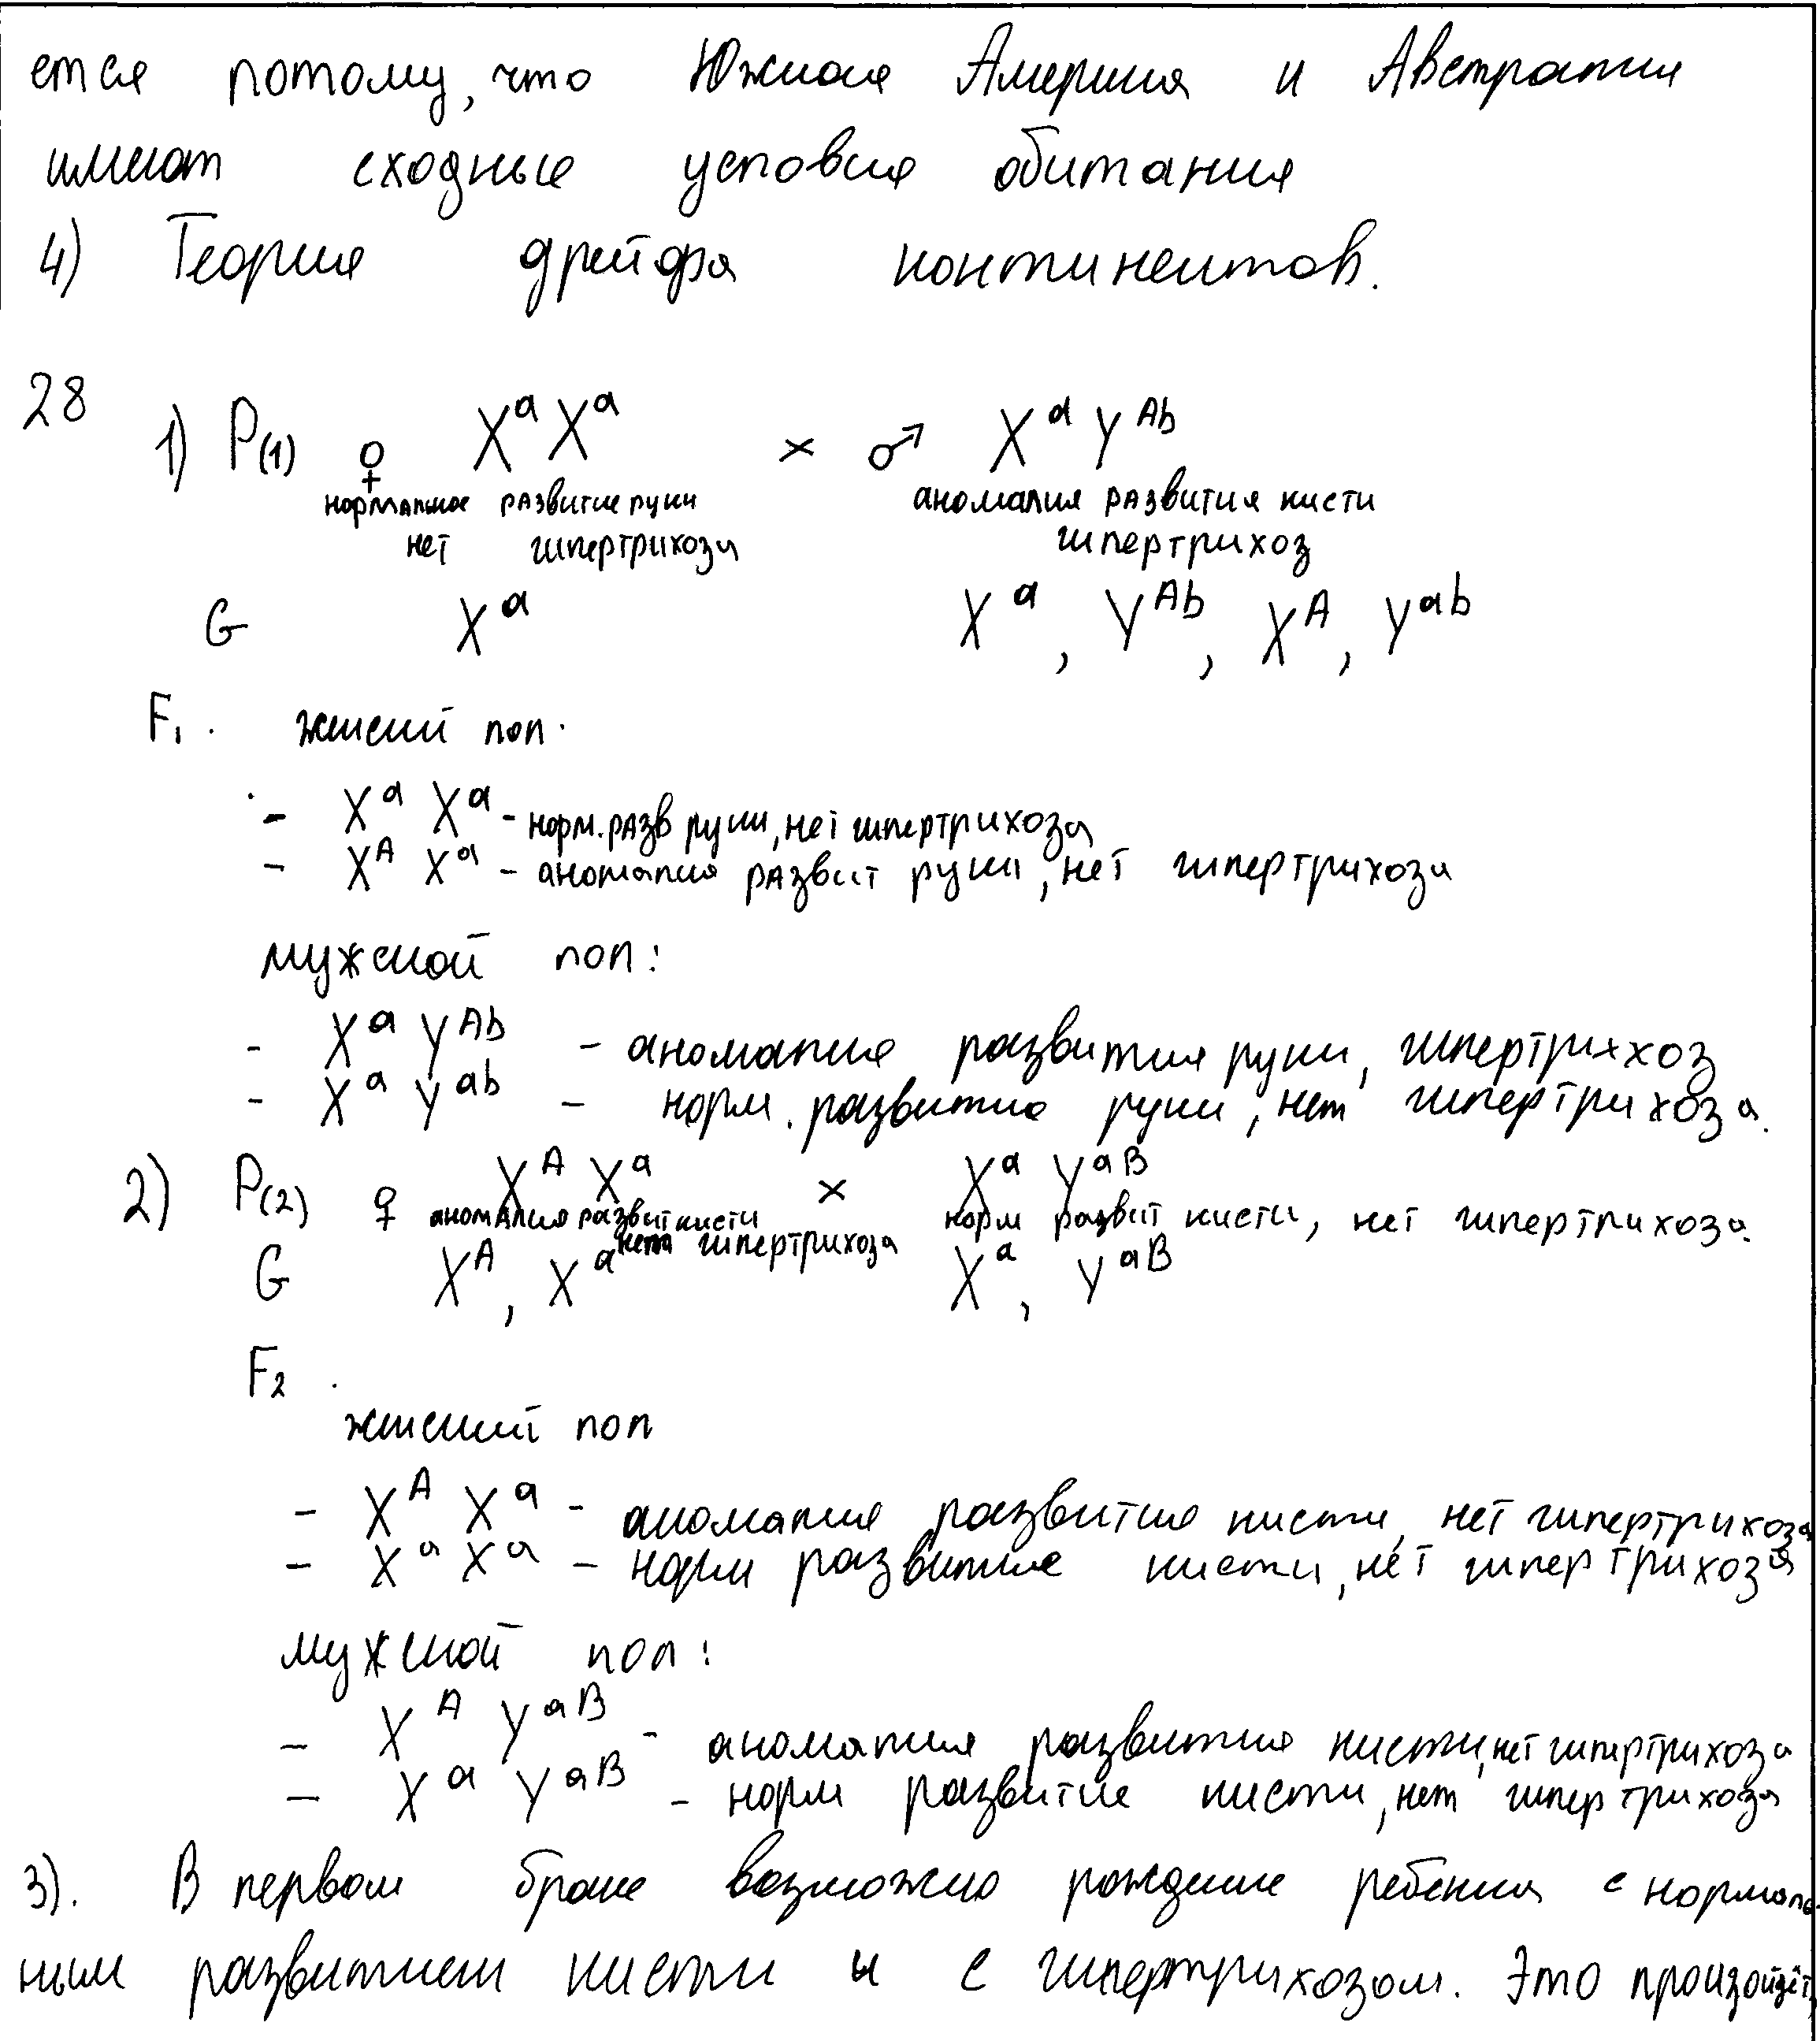 ется потому, что Южная Америка и Австралия
имеют сходные условия обитания
4) Теория дрейфа континентов.
28
1) P(1) ♀ XᵃXᵃ × ♂ XᵃYᴬᵇ
нормальное развитие руки аномалия развития кисти
нет гипертрихоза гипертрихоз
G Xᵃ Xᵃ, Yᴬᵇ, Xᴬ, Yᵃᵇ
F₁. женский пол.
- Xᵃ Xᵃ - норм. разв руки, нет гипертрихоза
- Xᴬ Xᵃ - аномалия развит руки, нет гипертрихоза
мужской пол:
- Xᵃ Yᴬᵇ - аномалия развития руки, гипертрихоз
- Xᵃ Yᵃᵇ - норм. развитие руки, нет гипертрихоза.
2) P(2) ♀ Xᴬ Xᵃ × Xᵃ Yᵃᴮ
аномалия развит кисти норм развит кисти, нет гипертрихоза.
нет гипертрихоза
G Xᴬ, Xᵃ Xᵃ, Yᵃᴮ
F₂.
женский пол
- Xᴬ Xᵃ - аномалия развития кисти, нет гипертрихоза
- Xᵃ Xᵃ - норм развитие кисти, нет гипертрихоза
мужской пол:
- Xᴬ Yᵃᴮ - аномалия развития кисти, нет гипертрихоза
- Xᵃ Yᵃᴮ - норм развитие кисти, нет гипертрихоза
3). В первом браке возможно рождение ребенка с нормаль-
ным развитием кисти и с гипертрихозом. Это произойдёт,